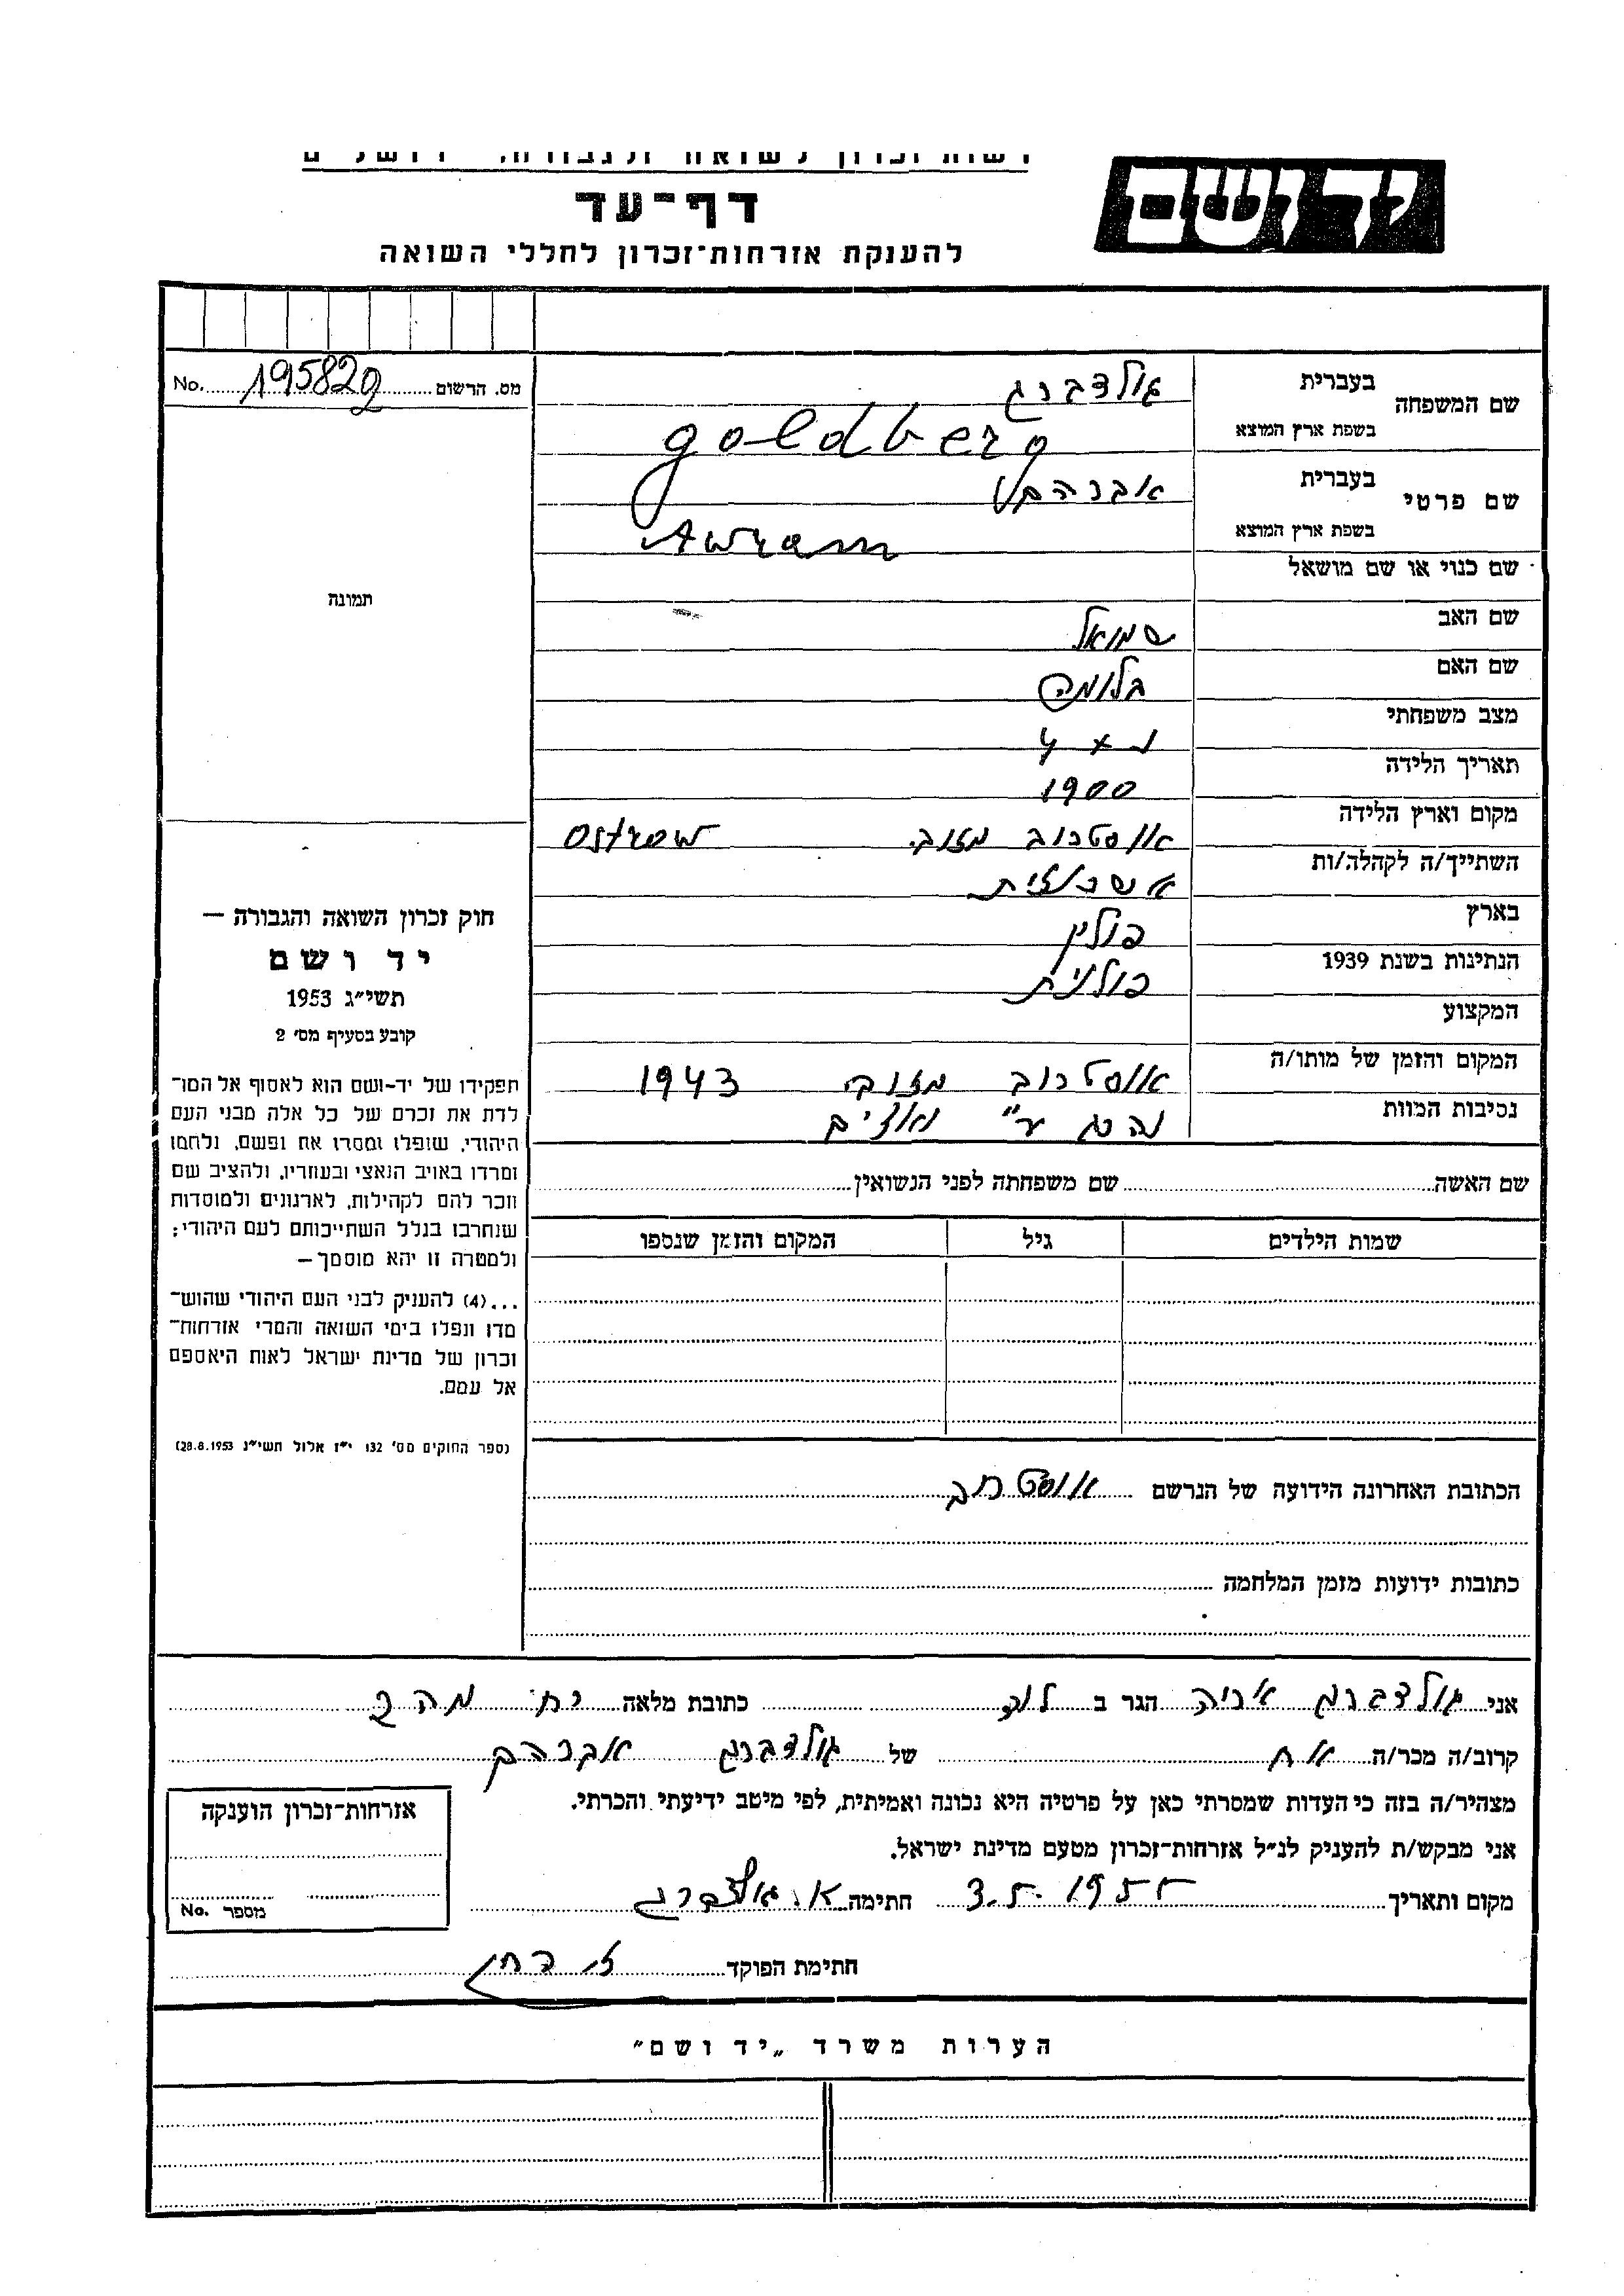 יד ושם
דף־עד
להענקת אזרחות־זכרון לחללי השואה
מס. הרשום 195829 No.
תמונה
שם המשפחה
בעברית גולדברג
בשפת ארץ המוצא goldberg
שם פרטי
בעברית אברהם
בשפת ארץ המוצא Awram
שם כנוי או שם מושאל
שם האב שמואל
שם האם בלומה
מצב משפחתי
תאריך הלידה 1900
מקום וארץ הלידה אוסטרוב מזוב. Ostrow
השתייך/ה לקהלה/ות
בארץ פולין
הנתינות בשנת 1939 פולנית
המקצוע
המקום והזמן של מותו/ה אוסטרוב מזוב. 1943
נסיבות המוות נהרג ע״י נאצים
שם האשה שם משפחתה לפני הנשואין
שמות הילדים גיל המקום והזמן שנספו
חוק זכרון השואה והגבורה —
יד ושם
תשי״ג 1953
קובע בסעיף מס׳ 2
תפקידו של יד-ושם הוא לאסוף אל המו־
לדת את זכרם של כל אלה מבני העם
היהודי, שנפלו ומסרו את נפשם, נלחמו
ומרדו באויב הנאצי ובעוזריו, ולהציב שם
וזכר להם לקהילות, לארגונים ולמוסדות
שנחרבו בגלל השתייכותם לעם היהודי;
ולמטרה זו יהא מוסמך—
...(4) להעניק לבני העם היהודי שהוש־
מדו ונפלו בימי השואה והמרי אזרחות־
זכרון של מדינת ישראל לאות היאספם
אל עמם.
(ספר החוקים מס׳ 132 י״ז אלול תשי״ג 28.8.1953)
הכתובת האחרונה הידועה של הנרשם אוסטרוב
כתובות ידועות מזמן המלחמה
אני גולדברג אריה הגר ב לוד כתובת מלאה רח׳
קרוב/ה מכר/ה אח של גולדברג אברהם
מצהיר/ה בזה כי העדות שמסרתי כאן על פרטיה היא נכונה ואמיתית, לפי מיטב ידיעתי והכרתי.
אני מבקש/ת להעניק לנ״ל אזרחות־זכרון מטעם מדינת ישראל.
מקום ותאריך 3.5.1955 חתימה א. גולדברג
חתימת הפוקד
אזרחות־זכרון הוענקה
מספר No.
הערות משרד „יד ושם״